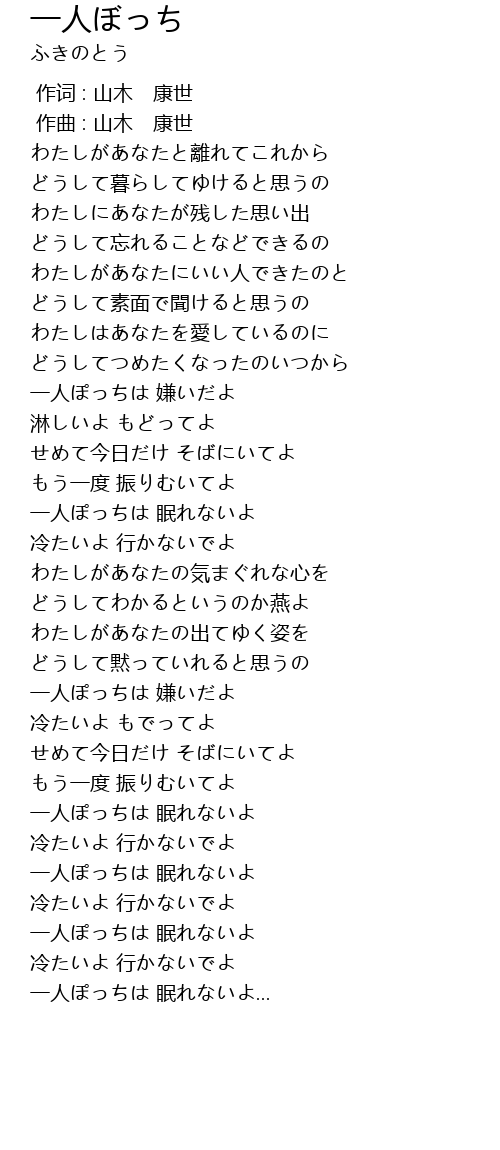 一人ぼっち
ふきのとう
作词 : 山木　康世
作曲 : 山木　康世
わたしがあなたと離れてこれから
どうして暮らしてゆけると思うの
わたしにあなたが残した思い出
どうして忘れることなどできるの
わたしがあなたにいい人できたのと
どうして素面で聞けると思うの
わたしはあなたを愛しているのに
どうしてつめたくなったのいつから
一人ぽっちは 嫌いだよ
淋しいよ もどってよ
せめて今日だけ そばにいてよ
もう一度 振りむいてよ
一人ぽっちは 眠れないよ
冷たいよ 行かないでよ
わたしがあなたの気まぐれな心を
どうしてわかるというのか燕よ
わたしがあなたの出てゆく姿を
どうして黙っていれると思うの
一人ぽっちは 嫌いだよ
冷たいよ もでってよ
せめて今日だけ そばにいてよ
もう一度 振りむいてよ
一人ぽっちは 眠れないよ
冷たいよ 行かないでよ
一人ぽっちは 眠れないよ
冷たいよ 行かないでよ
一人ぽっちは 眠れないよ
冷たいよ 行かないでよ
一人ぽっちは 眠れないよ...